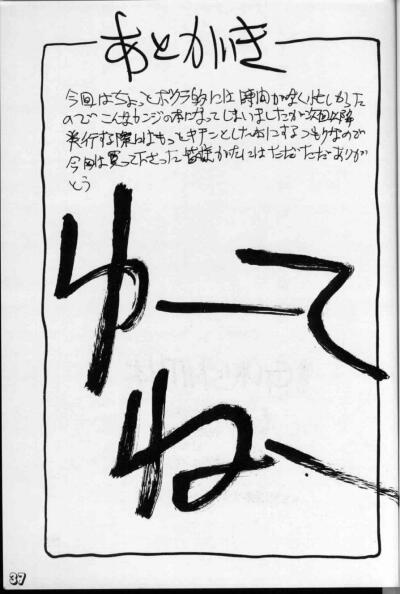 あとがき
今回はちょっとボクラ的には時間が全く忙しかった
のでこんなカンジの本になってしまいましたが次回以降
発行する際はもっとキチンとした本にするつもりなので
今回は買って下さった皆様がたにはただただありが
とう
ゆーて
ねー
37